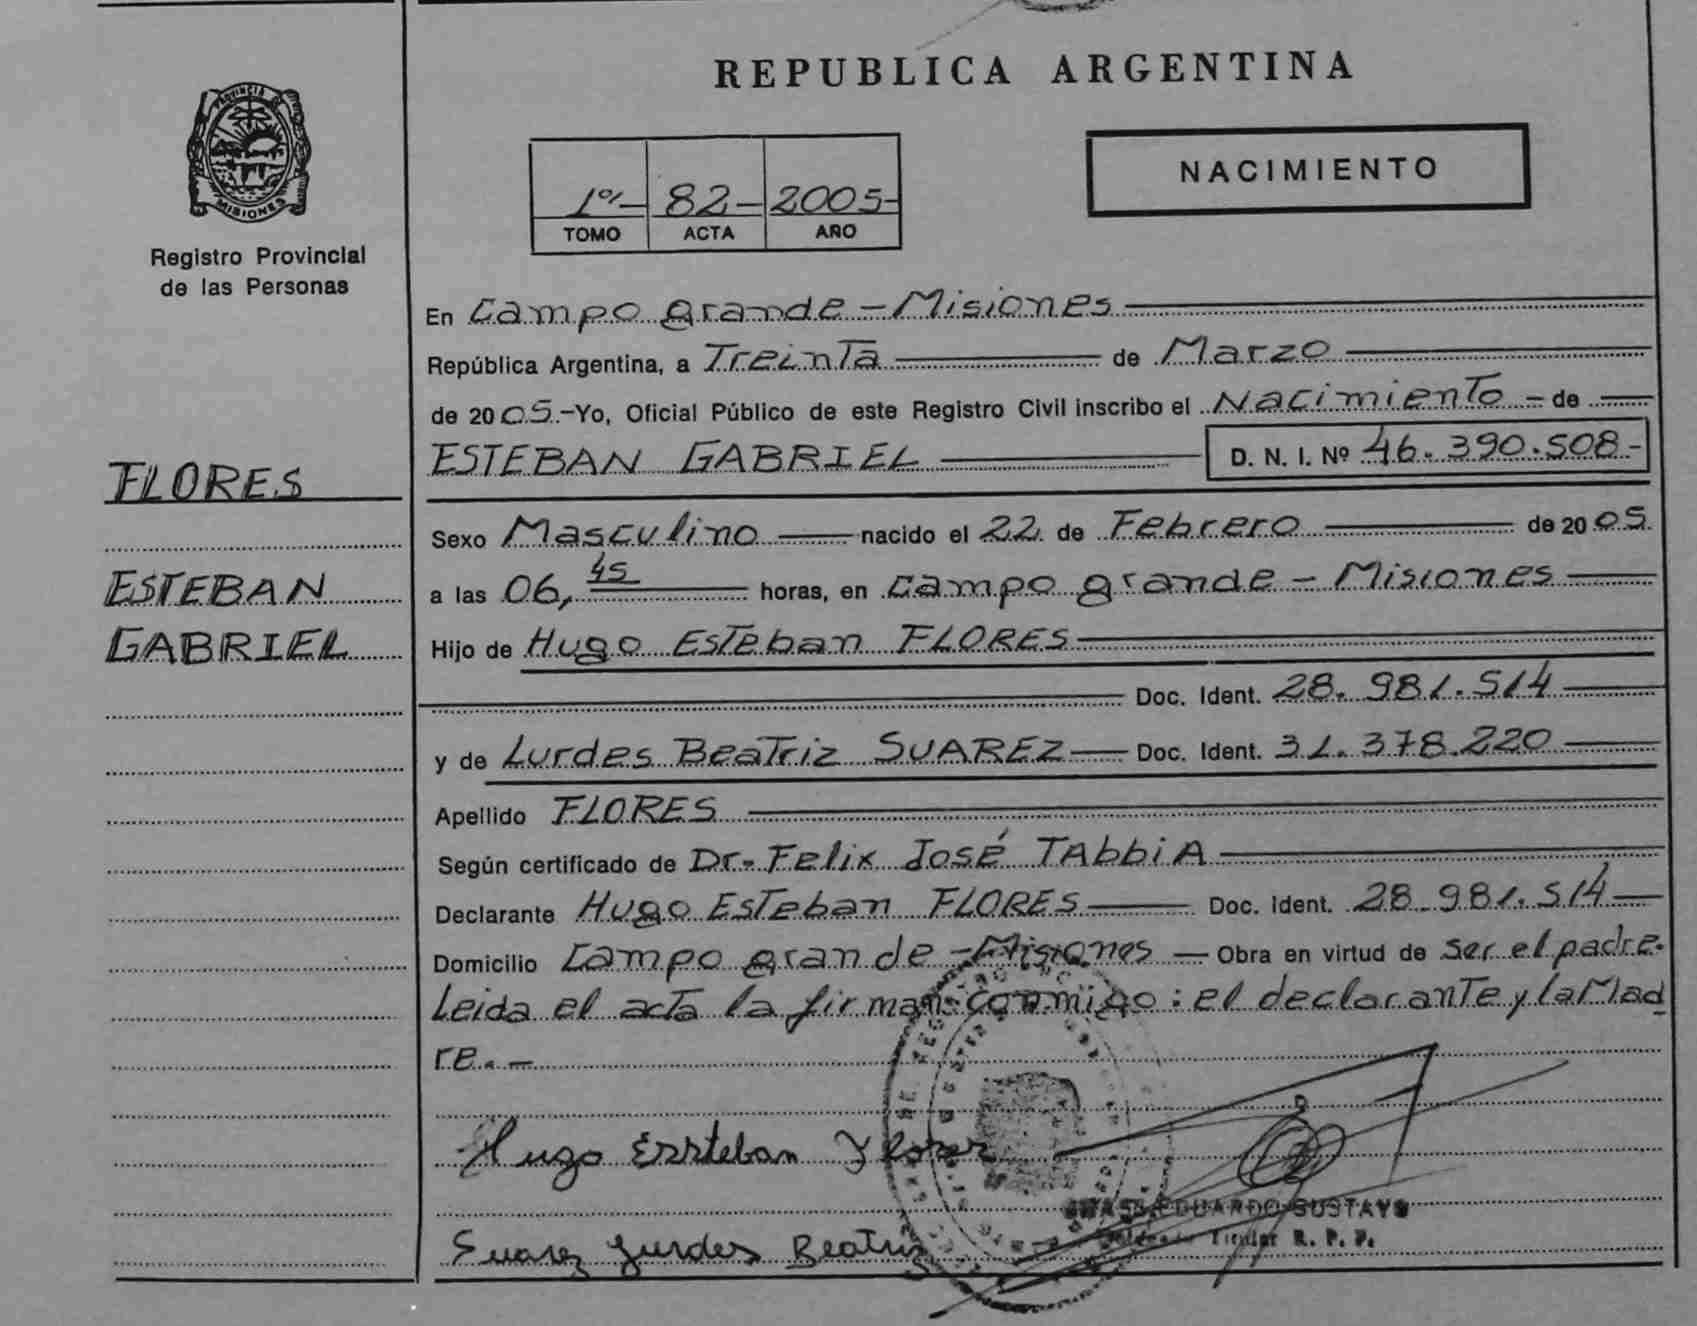 PROVINCIA DE
MISIONES
Registro Provincial
de las Personas
FLORES
ESTEBAN
GABRIEL
REPUBLICA ARGENTINA
1º- 82- 2005-
TOMO ACTA AÑO
NACIMIENTO
En Campo grande - Misiones
República Argentina, a Treinta de Marzo
de 2005.-Yo, Oficial Público de este Registro Civil inscribo el Nacimiento - de
ESTEBAN GABRIEL D. N. I. Nº 46.390.508-
Sexo Masculino nacido el 22 de Febrero de 2005
a las 06,45 horas, en Campo grande - Misiones
Hijo de Hugo Esteban FLORES
Doc. Ident. 28.981.514
y de Lurdes Beatriz SUAREZ Doc. Ident. 31.378.220
Apellido FLORES
Según certificado de Dr. Felix José TAbbiA
Declarante Hugo Esteban FLORES Doc. Ident. 28.981.514
Domicilio Campo grande - Misiones Obra en virtud de ser el padre.
Leida el acta la firman conmigo: el declarante y la Mad
re.-
Hugo Essteban Flores
EDUARDO GUSTAVO
Titular R. P. P.
Suarez Lurdes Beatriz